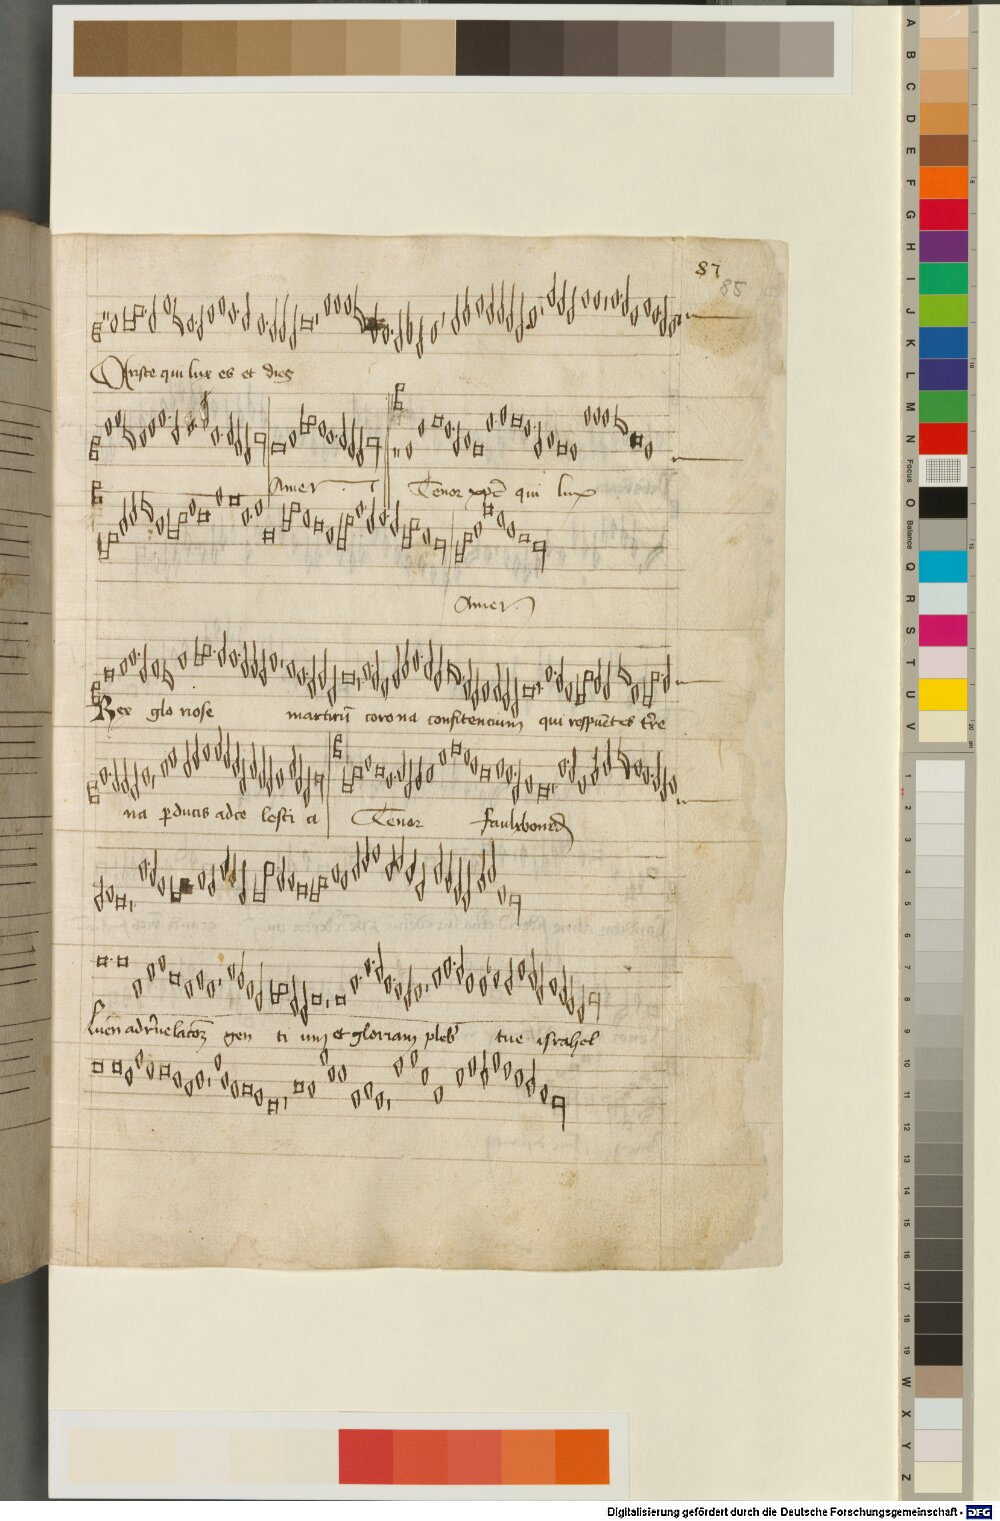 87
85
Criste qui lux es et dies
Amen
Tenor xpe qui lux
Amen
Rex glo riose martirū corona confitencium qui respuētes t're
na pducis adce lesti a
Tenor faulxbourd
Lumen ad reuelacōem gen ti um et gloriam pleb' tue israhel
A
B
C
D
E
F
G
H
I
J
K
L
M
N
Focus
O
Balance
Q
R
S
T
U
V
1
2
3
4
5
6
7
8
9
10
11
12
13
14
15
16
17
18
19
W
X
Y
Z
Digitalisierung gefördert durch die Deutsche Forschungsgemeinschaft - DFG